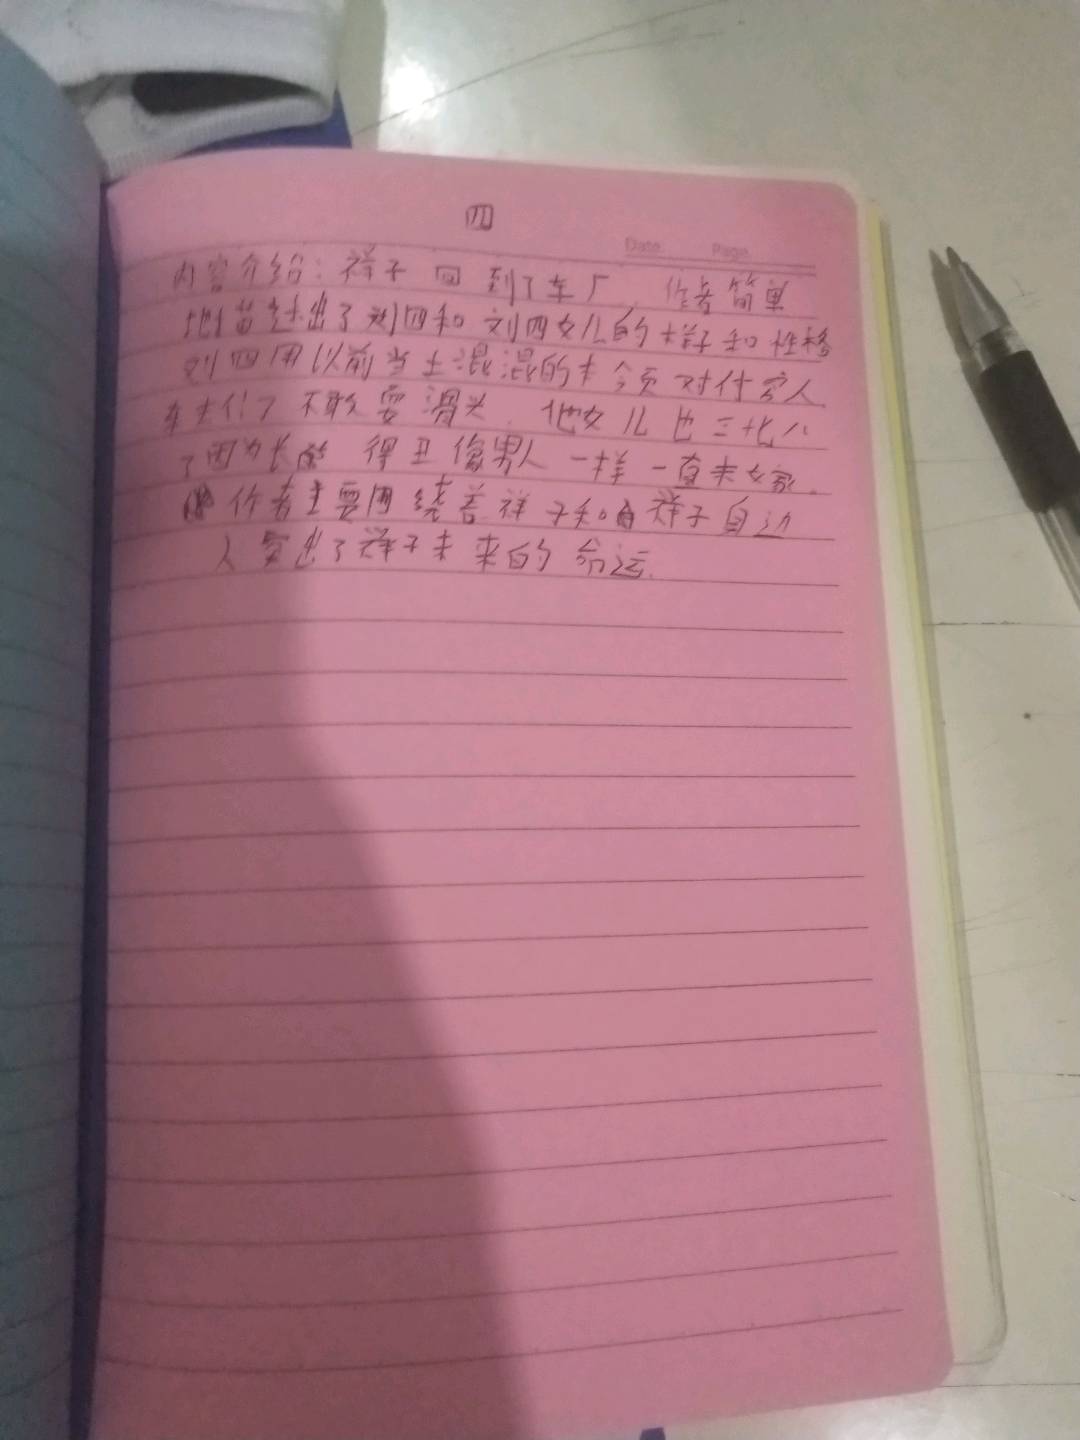 四
Date Page
内容介绍：祥子回到了车厂，作者简单
地描述出了刘四和刘四女儿的样子和性格
刘四用以前当土混混的本领对付穷人
车夫们了不敢耍滑头．他女儿也三七八
了因为长的得丑像男人一样一直未嫁．
作者主要用绕着祥子和祥子自边
人突出了祥子未来的命运．